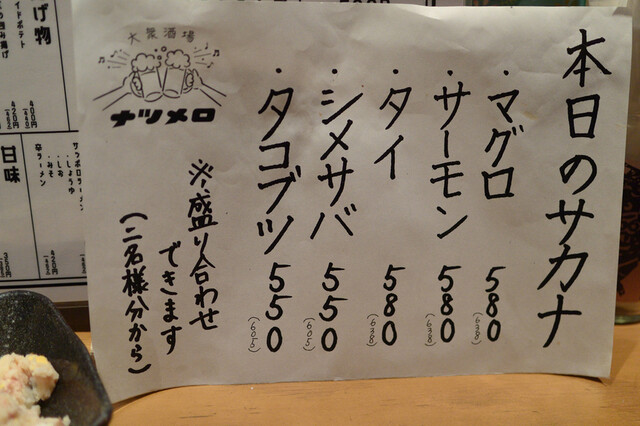 本日のサカナ
・マグロ 580 (638)
・サーモン 580 (638)
・タイ 580 (638)
・シメサバ 550 (605)
・タコブツ 550 (605)
※盛り合わせ
できます
(二名様分から)
大衆酒場
ナツメロ
げ物
イドポテト
甘味
サッポロラーメン
・しょうゆ
・しお
・みそ
辛ラーメン